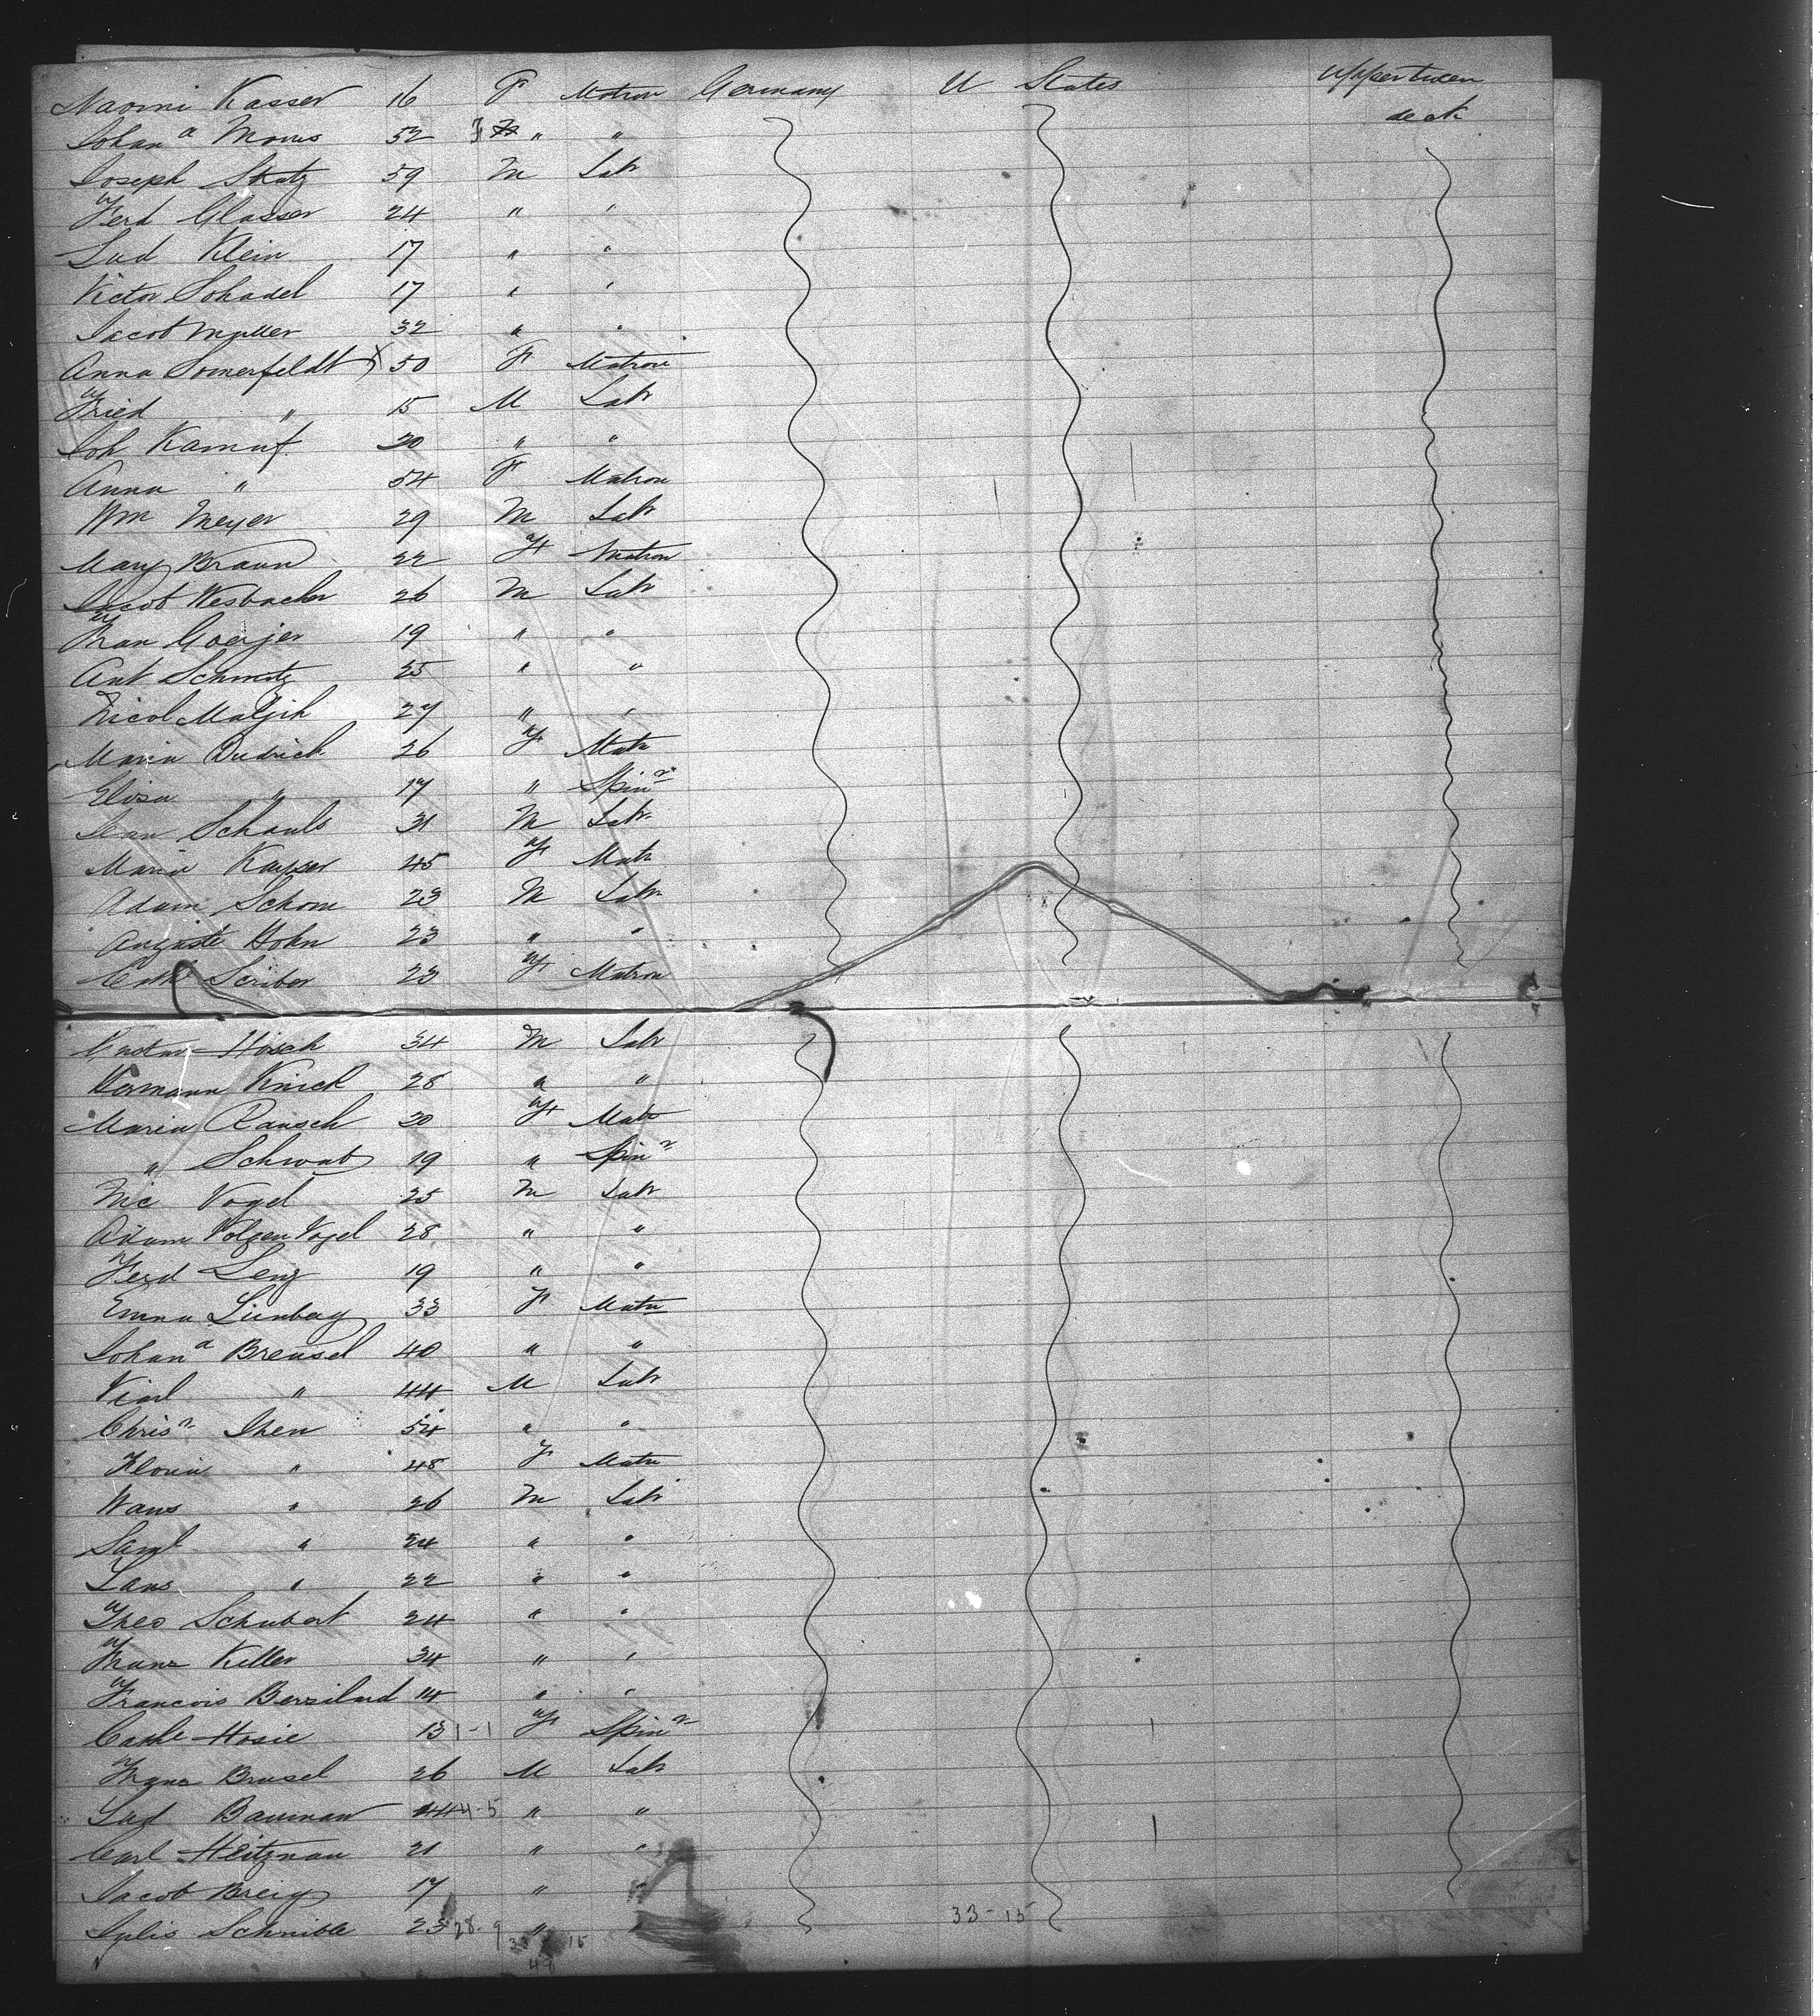 Naomi Kasser 16 F Matron Germany U States Upper tween
deck
Johan a Morris 52 F " "
Joseph Skatz 59 M Labr
Ferd Glasser 24 " "
Lud Klein 17 " "
Victor Schadel 17 " "
Jacob Muller 32 " "
Anna Somerfeldt X 50 F Matron
Fried " 15 M Labr
Joh Kamuf 20 " "
Anna " 54 F Matron
Wm Meyer 29 M Labr
Mary Braun 22 F Matron
Jacob Wesbacher 26 M Labr
Fran Goerjen 19 " "
Ant Schmitz 25 " "
Nicol Maljih 27 " "
Maria Dudrich 26 F Matr
Elisa " 17 " Spinr
Jean Schauls 31 M Labr
Maria Kayser 45 F Matr
Adam Schom 23 M Labr
Auguste Hohn 23 " "
Cath Scriber 23 F Matron
Gustav Hosch 34 M Labr
Hermann Knich 28 " "
Maria Rausch 20 F Matr
" Schwab 19 " Spinr
Nic Vogel 25 M Labr
Adam Volzen Vogel 28 " "
Ferd Lenz 19 " "
Emma Limbay 33 F Matr
Johan a Breusel 40 " "
Karl " 44 M Labr
Chrisn Ihen 54 " "
Floria " 48 F Matr
Hans " 26 M Labr
Saml " 24 " "
Lans " 22 " "
Theo Schubert 24 " "
Franz Keller 34 " "
Francois Berzilard 14 " "
Cathe Hosie 13 1-1 F Spinr
Franz Brusel 26 M Labr
Lud Bauman 44 4-5 " "
Carl Heitzman 21 " "
Jacob Breig 17 " "
Schnible 23 28-9 "
33 15 33-15
48